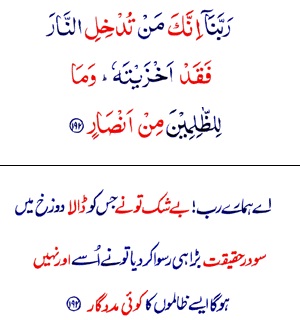 رَبَّنَآ اِنَّكَ مَنْ تُدْخِلِ النَّارَ
فَقَدْ اَخْزَيْتَهٗ ؕ وَمَا
لِلظّٰلِمِيْنَ مِنْ اَنْصَارٍ ﴿۱۹۲﴾
اے ہمارے رب! بے شک تو نے جس کو ڈالا دوزخ میں
سو در حقیقت بڑا ہی رسوا کر دیا تو نے اُسے اور نہیں
ہو گا ایسے ظالموں کا کوئی مددگار ﴿۱۹۲﴾